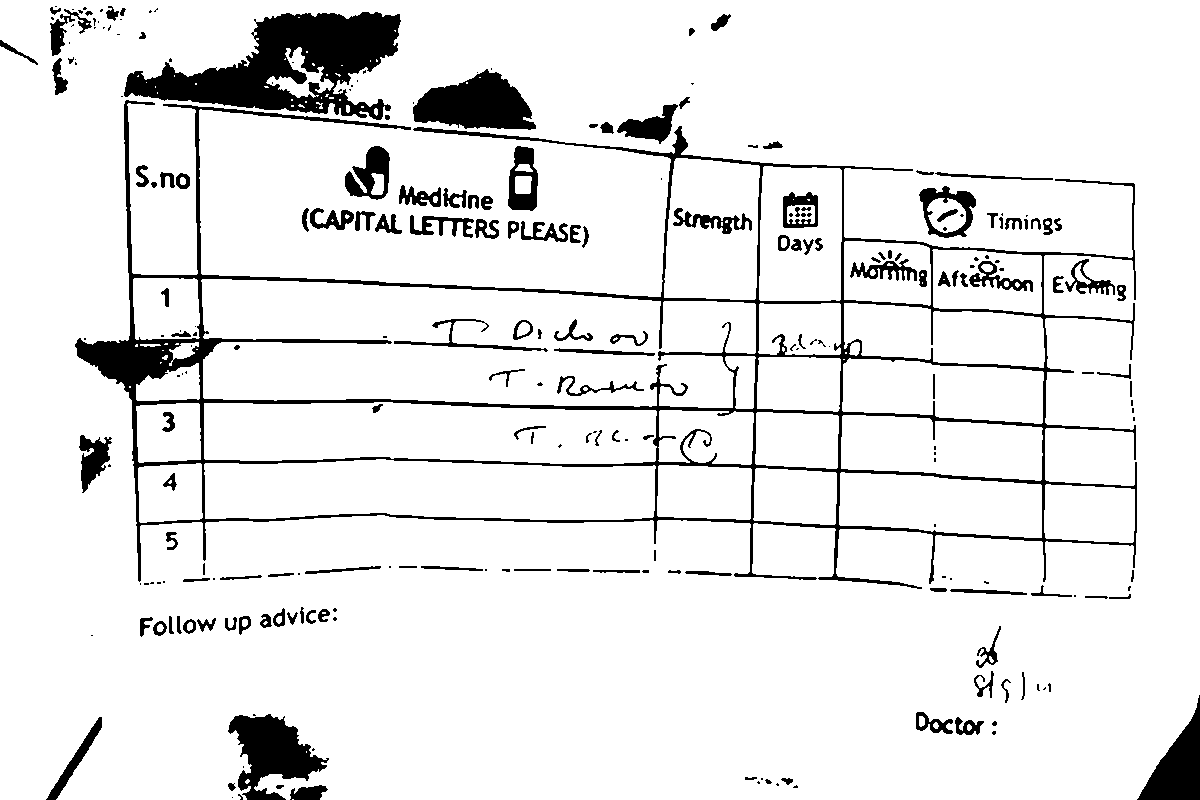 scribed:
S.no
Medicine
(CAPITAL LETTERS PLEASE)
Strength
Days
Timings
Morning
Afternoon
Evening
1
T Diclo
3 days
2
T.
3
T.
4
5
Follow up advice:
Doctor :